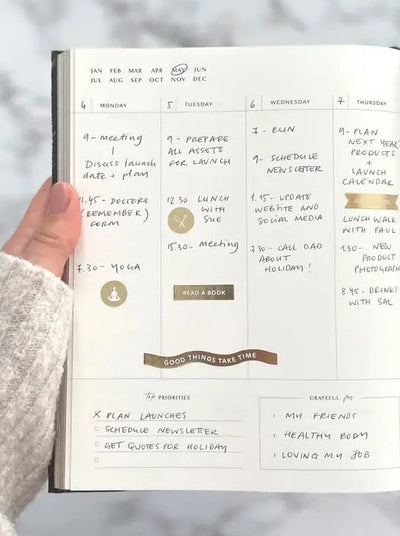 JAN FEB MAR APR MAY JUN
JUL AUG SEP OCT NOV DEC
4 MONDAY
9 - meeting
Discuss launch
date + plan
11.45 - DOCTORS
(REMEMBER)
FORM
7.30 - YOGA
5 TUESDAY
9 - PREPARE
ALL ASSETS
FOR LAUNCH
12.30 LUNCH
WITH
SUE
15.30 - meeting
READ A BOOK
6 WEDNESDAY
7 - RUN
9 - SCHEDULE
NEWSLETTER
1.15 - UPDATE
WEBSITE AND
SOCIAL MEDIA
7.30 - CALL DAD
ABOUT
HOLIDAY!
7 THURSDAY
9 - PLAN
NEXT YEAR
PRODUCTS
+
LAUNCH
CALENDAR
LUNCH WALK
WITH PAUL
1.30 - NEW
PRODUCT
PHOTOGRAPH
8.45 - DRINKS
WITH SAL
GOOD THINGS TAKE TIME
Top PRIORITIES
X PLAN LAUNCHES
SCHEDULE NEWSLETTER
GET QUOTES FOR HOLIDAY
GRATEFUL for
MY FRIENDS
HEALTHY BODY
LOVING MY JOB